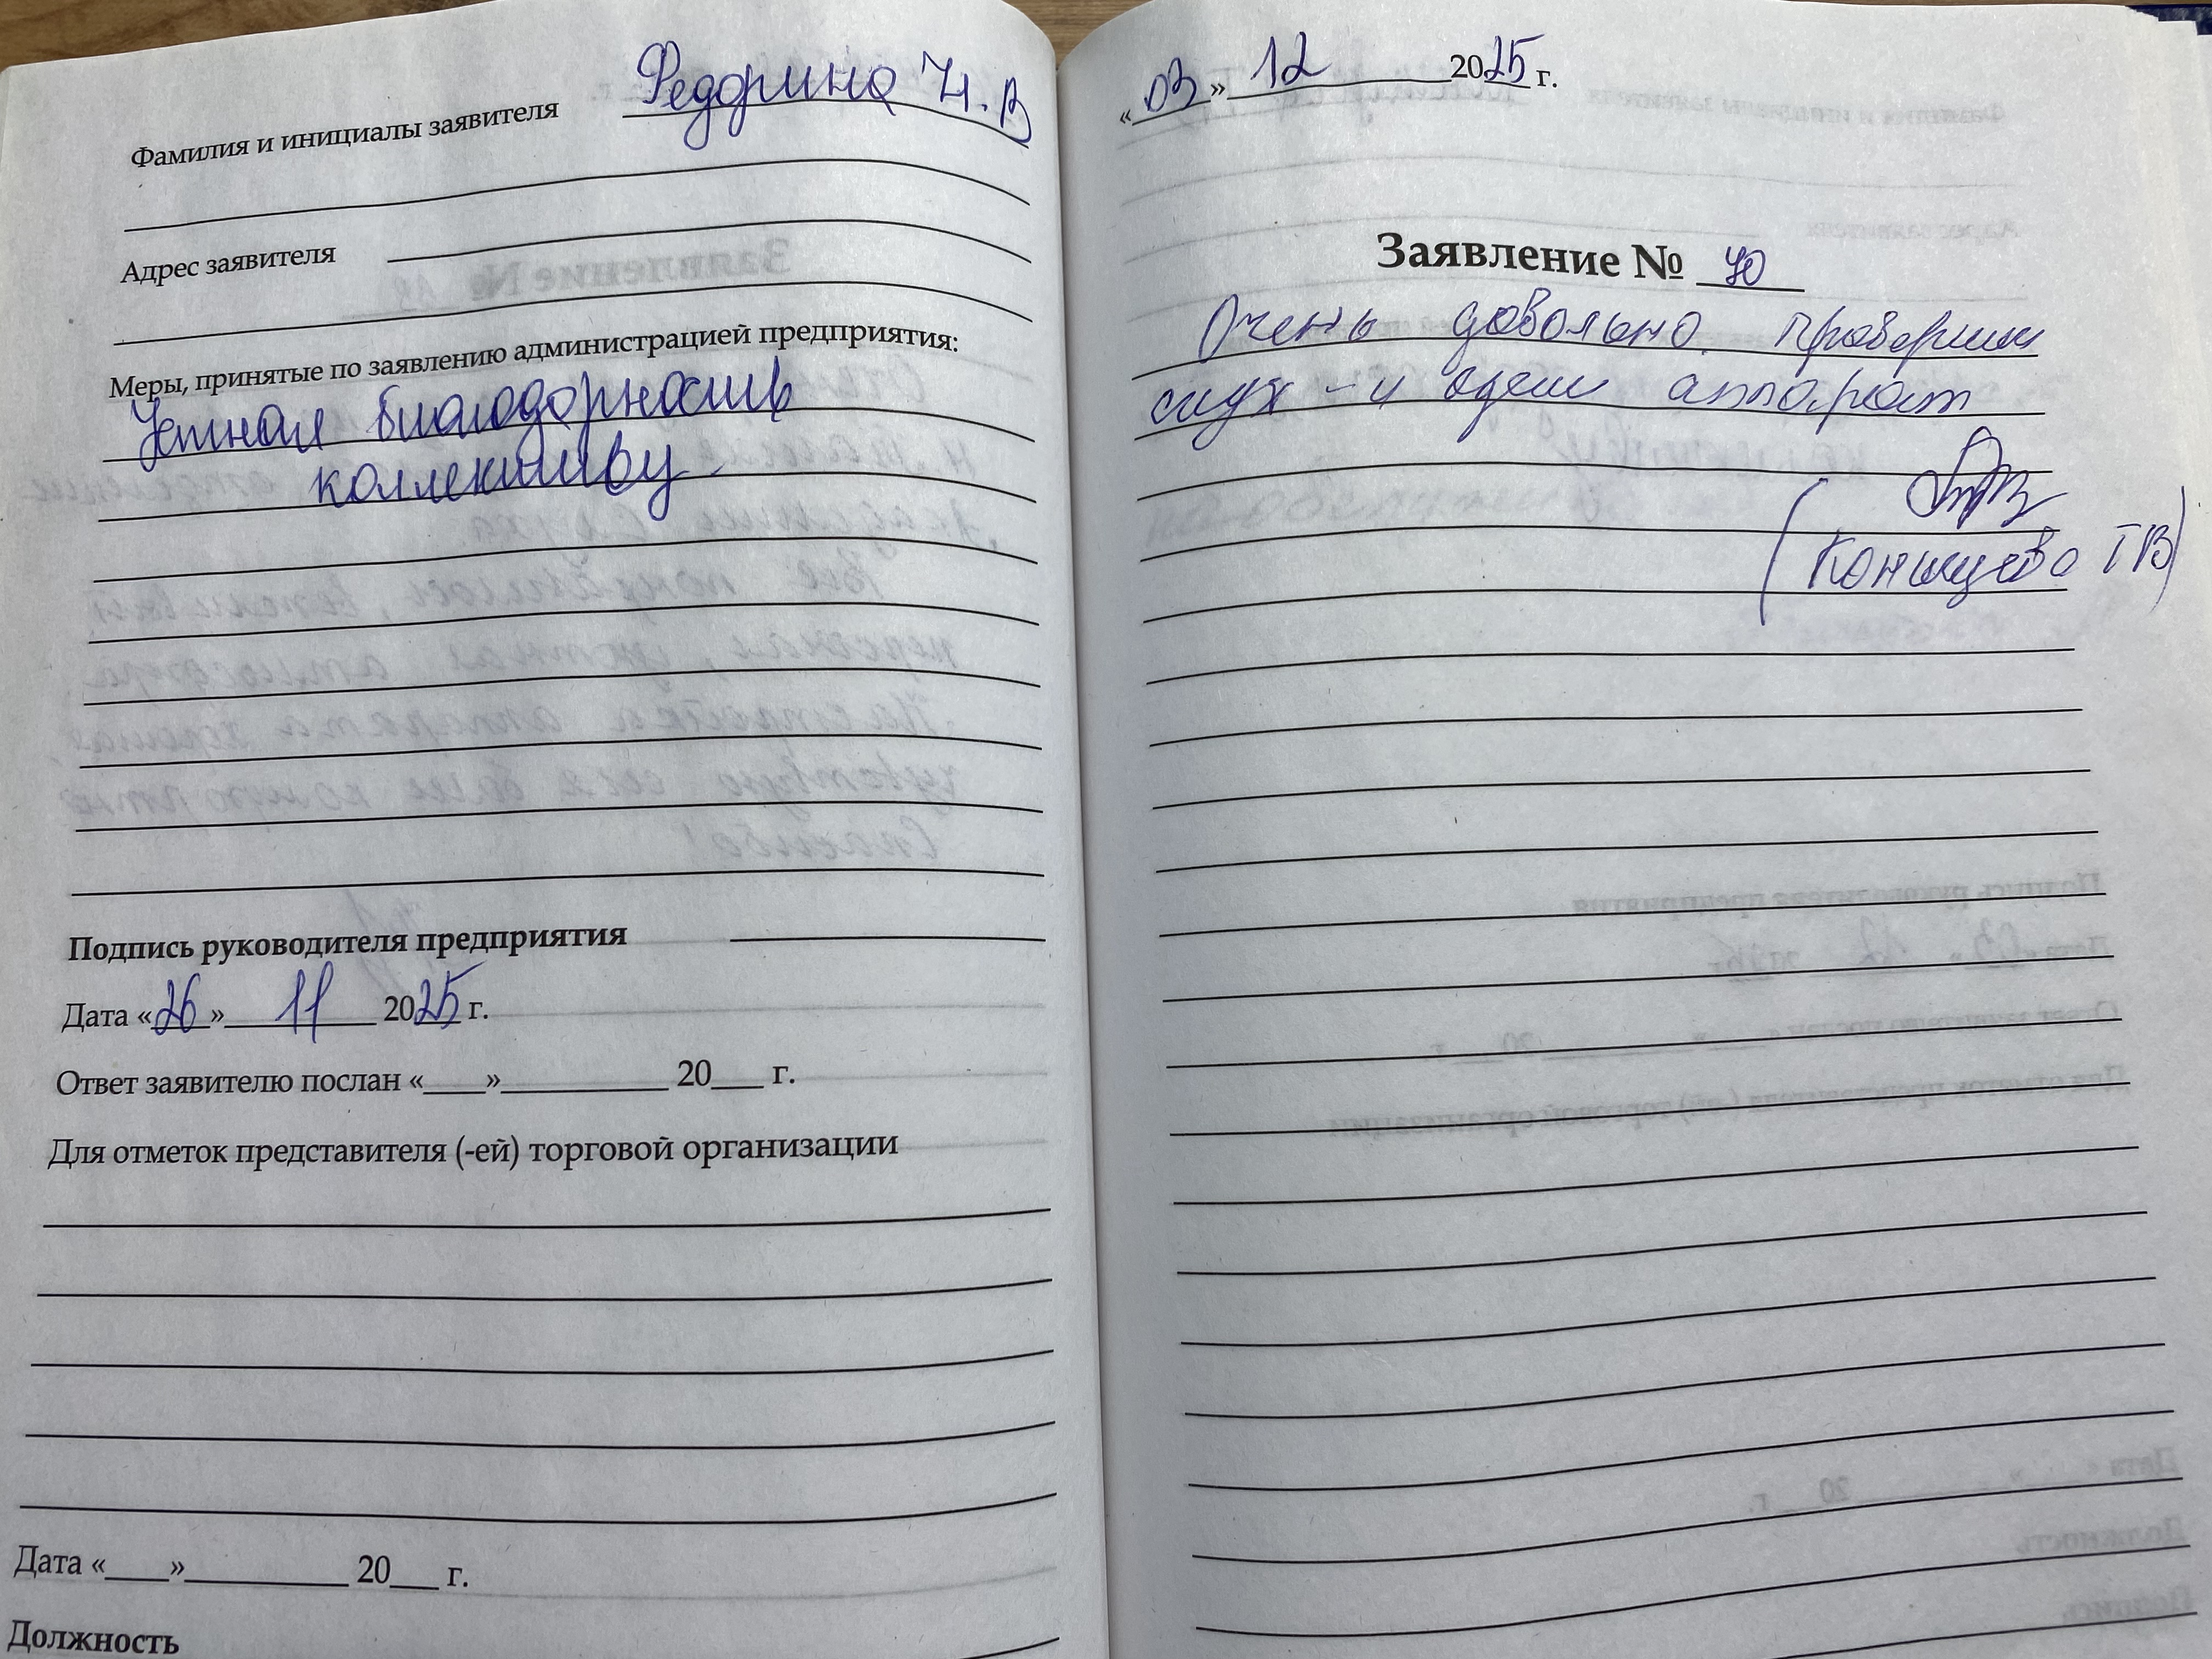 Фамилия и инициалы заявителя Федорина Н. В
Адрес заявителя
Меры, принятые по заявлению администрацией предприятия:
Устная благодарность
коллективу
Подпись руководителя предприятия
Дата «26» 11 2025 г.
Ответ заявителю послан «___»__________ 20___ г.
Для отметок представителя (-ей) торговой организации
Дата «___»__________ 20___ г.
Должность
«03» 12 2025 г.
Заявление № 40
Очень довольна. проверили
слух - и одели аппарат
(Конышева ТВ)